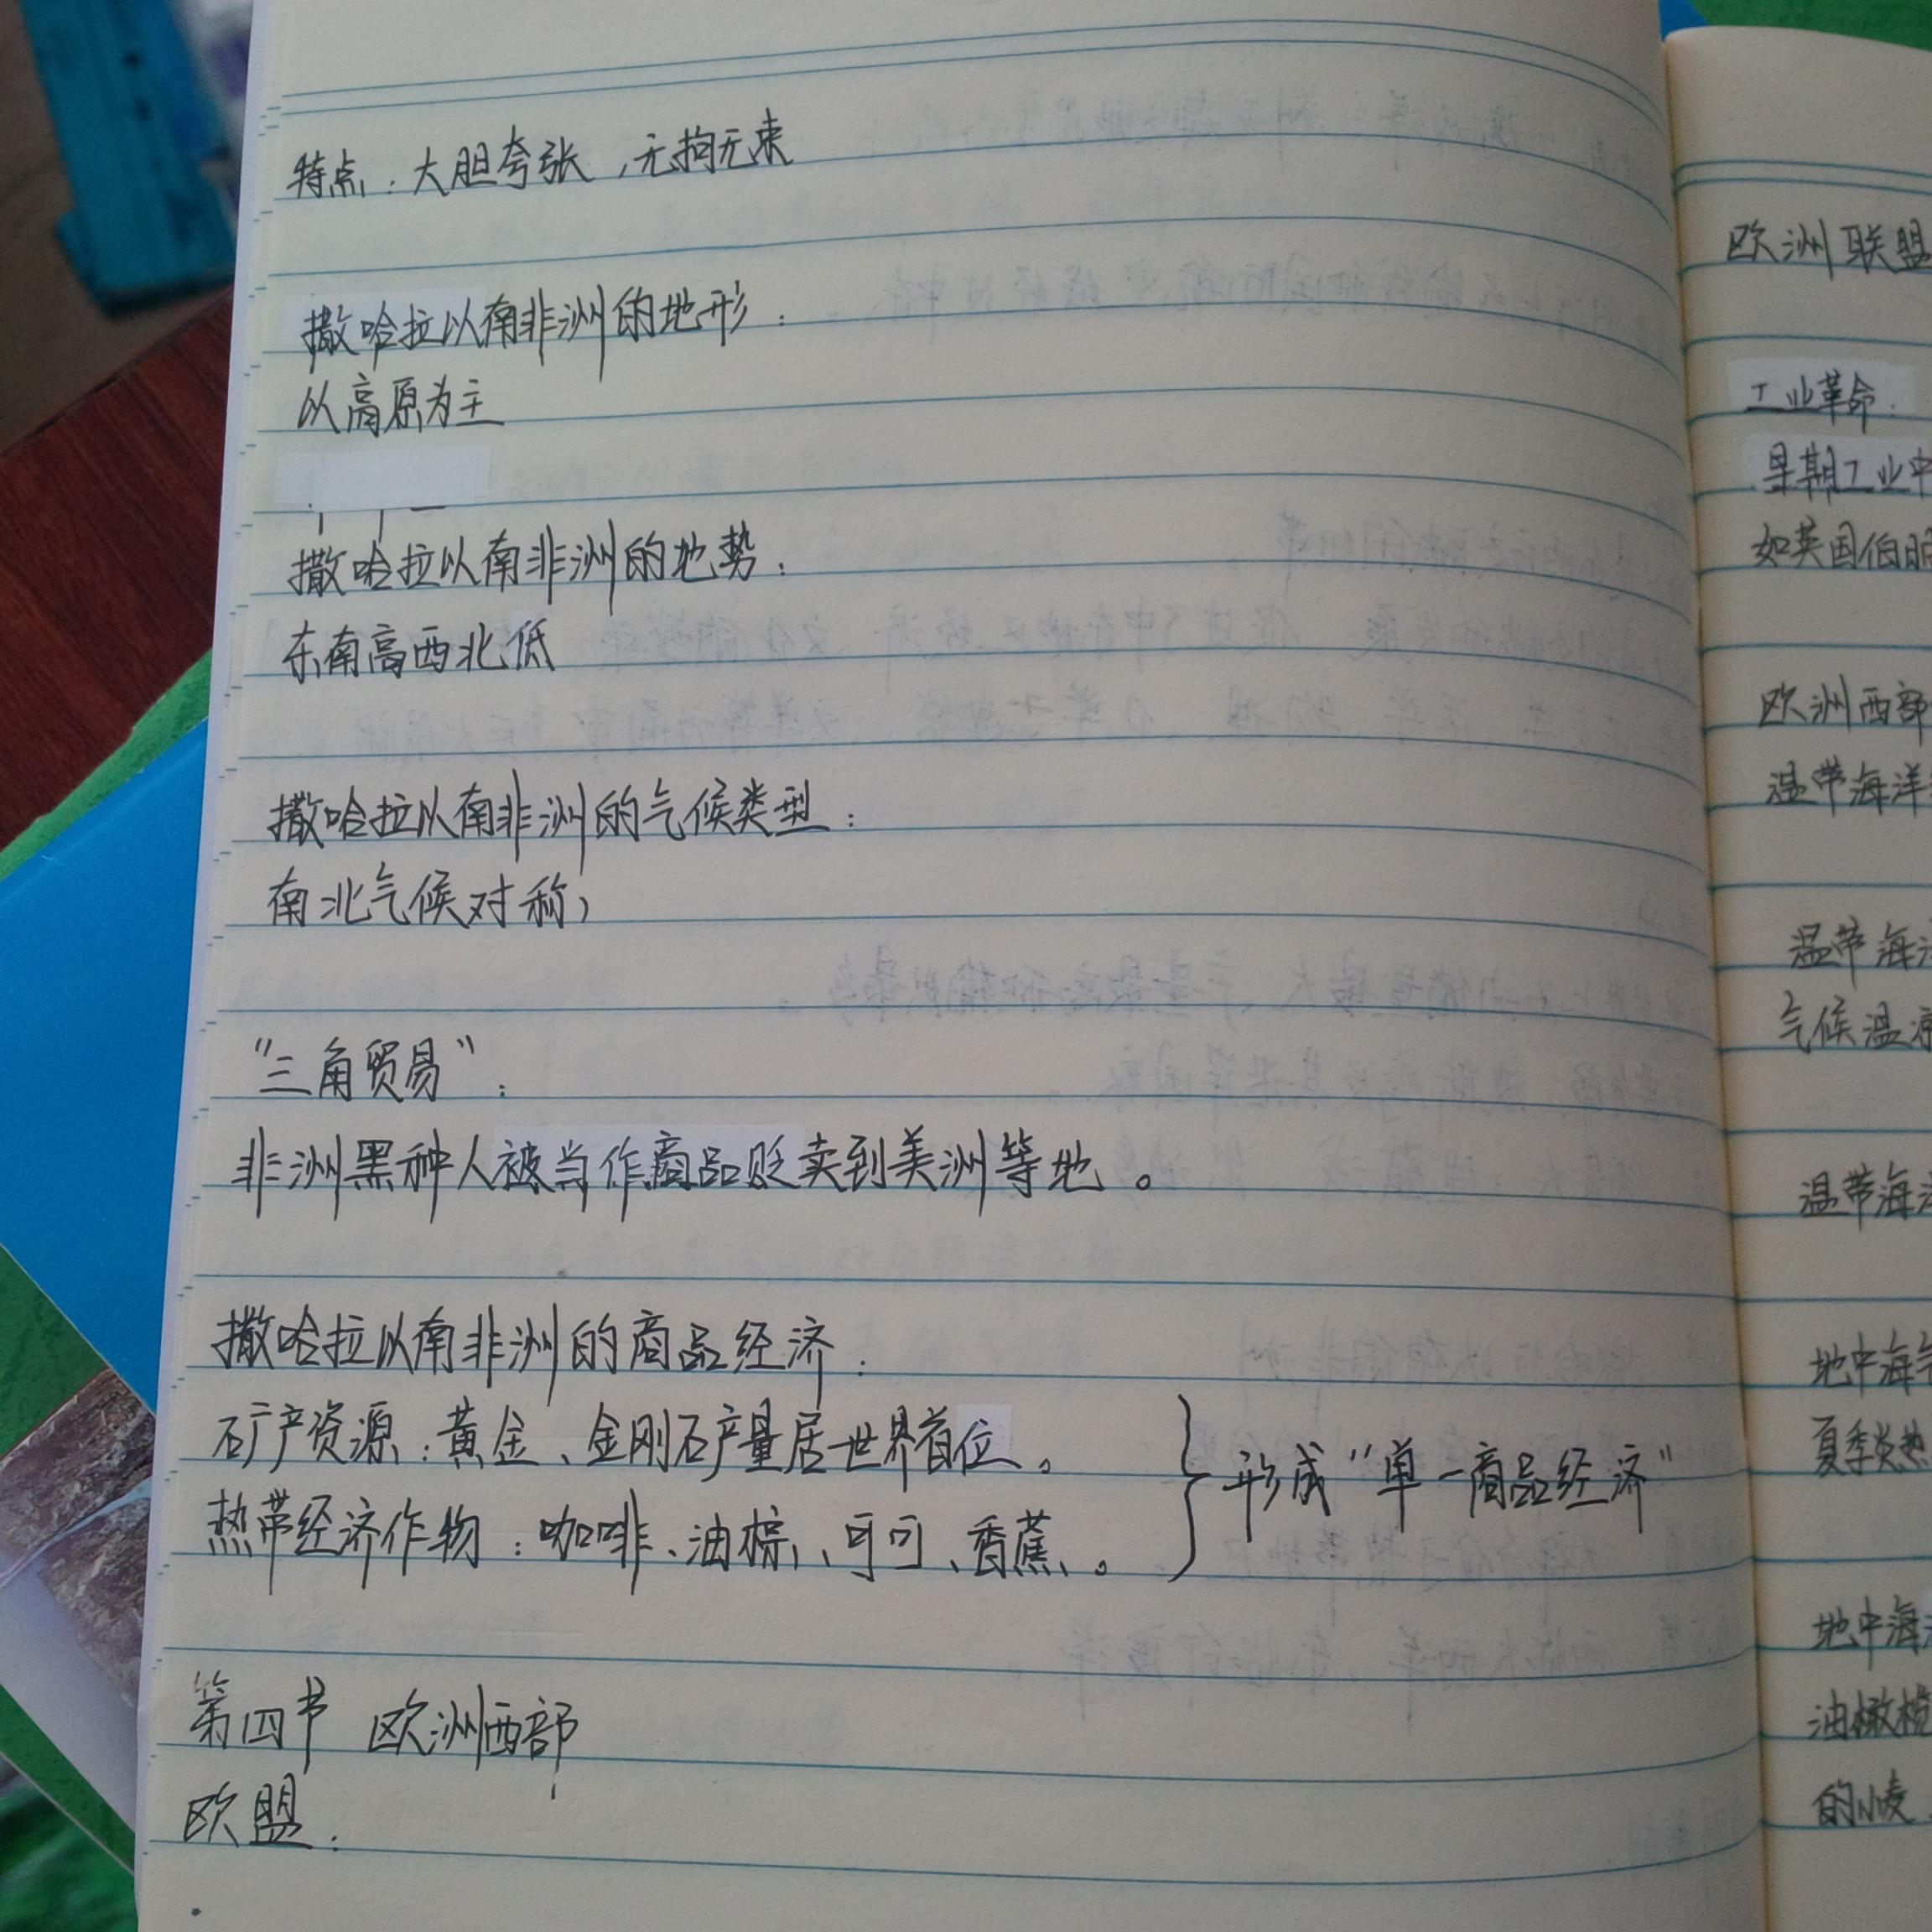 特点：大胆夸张，无拘无束
撒哈拉以南非洲的地形：
以高原为主
撒哈拉以南非洲的地势：
东南高西北低
撒哈拉以南非洲的气候类型：
南北气候对称，
“三角贸易”：
非洲黑种人被当作商品贬卖到美洲等地。
撒哈拉以南非洲的商品经济：
矿产资源：黄金、金刚石产量居世界首位。
热带经济作物：咖啡、油棕、可可、香蕉、。
形成“单一商品经济”
第四节 欧洲西部
欧盟：
欧洲联盟
工业革命：
早期工业中
如英国伯明
欧洲西部
温带海洋
温带海洋
气候温凉
温带海洋
地中海气
夏季炎热
地中海
油橄榄
的